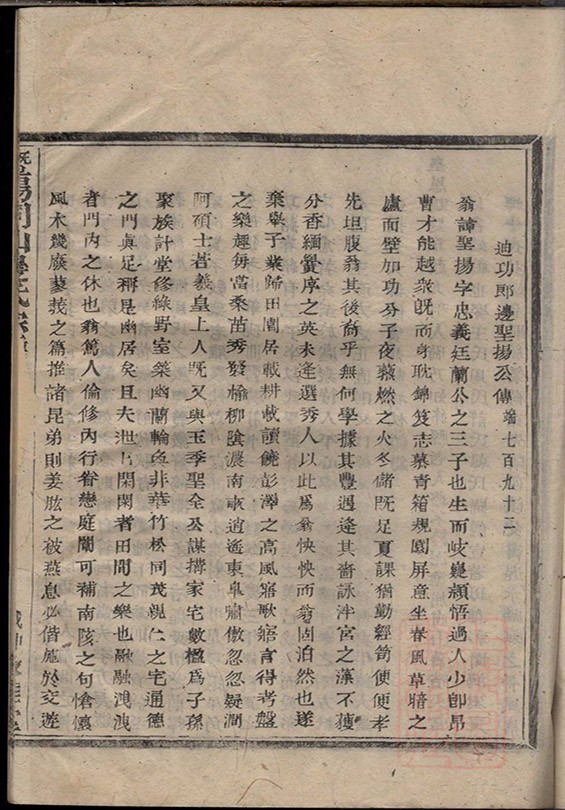 迪功郎邊聖揚公傳 端七百九十三
翁諱聖揚字忠義廷蘭公之三子也生而岐嶷穎悟過人少即昂
曹才能越衆既而身耽錦笈志慕青箱規園屏意坐春風草暗之
廬而壁加功分子夜蒸燃之火冬儲既足夏課猶勤經笥便便孝
先坦腹翁其後裔乎無何學據其豐遇逢其嗇詠泮宮之藻不獲
分香緬黌序之英未逢選秀人以此爲翁怏怏而翁固泊然也遂
棄舉子業歸田園居載耕載讀饒彭澤之高風寤歌寤言得考盤
之樂趣每當桑苗秀發榆柳陰濃南畝逍遙東臯嘯傲忽忽疑澗
阿碩士若羲皇上人既又與玉季聖全公謀搆家宅數楹爲子孫
聚族計堂修綠野室築幽蘭輪奐非華竹松同茂親仁之宅通德
之門眞足稱是幽居矣且夫泄泄閑閑者田間之樂也融融洩洩
者門內之休也翁篤人倫修內行眷戀庭闈可補南陔之句愴懷
風木幾廢蓼莪之篇推諸昆弟則姜肱之被燕息必偕施於交遊